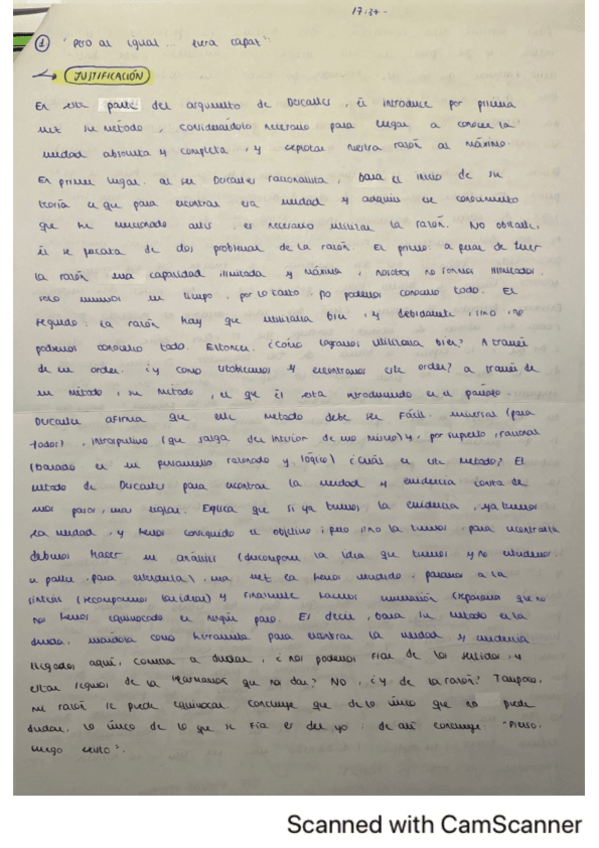 17:37 -
① "Pero al igual... fuera capaz":
JUSTIFICACIÓN
En esta parte del argumento de Descartes, él introduce por primera
vez su método, considerándolo necesario para llegar a conocer la
verdad absoluta y completa, y explotar nuestra razón al máximo.
En primer lugar, al ser Descartes racionalista, basa el inicio de su
teoría en que para encontrar esa verdad y adquirir ese conocimiento
que he mencionado antes es necesario utilizar la razón. No obstante,
él se percata de dos problemas de la razón. El primero: a pesar de tener
la razón una capacidad ilimitada y máxima, nosotros no somos ilimitados.
solo vivimos un tiempo, por lo tanto, no podemos conocerlo todo. El
segundo: la razón hay que utilizarla bien, y debidamente, sino, no
podremos conocerlo todo. Entonces, ¿cómo logramos utilizarla bien? A través
de un orden. ¿y cómo establecemos y encontramos este orden? a través de
un método, su método, el que él está introduciendo en el párrafo
Descartes afirma que este método debe ser fácil, universal (para
todos), introspectivo (que salga del interior de uno mismo) y, por supuesto, racional
(basado en un pensamiento razonado y lógico) ¿Cuál es este método? El
método de Descartes para encontrar la verdad y evidencia consta de
unos pasos, unas reglas. Explica que si ya tenemos la evidencia, ya tenemos
la verdad, y hemos conseguido el objetivo; pero si no la tenemos, para encontrarla
debemos hacer un análisis (descomponer la idea que tenemos y no entendemos
en partes, para entenderla), una vez la hemos entendido, pasamos a la
síntesis (recomponemos las ideas) y finalmente hacemos enumeración (repasar que no
nos hemos equivocado en ningún paso. Es decir, basa su método en la
duda, usándola como herramienta para encontrar la verdad y evidencia
llegados aquí, comienza a dudar, ¿nos podemos fiar de los sentidos, y
estar seguros de la información que nos dan? NO, ¿y de la razón? Tampoco,
mi razón se puede equivocar. Concluye que de lo único que no puede
dudar, lo único de lo que se fía es del yo: de ahí concluye: "Pienso,
luego existo".
Scanned with CamScanner